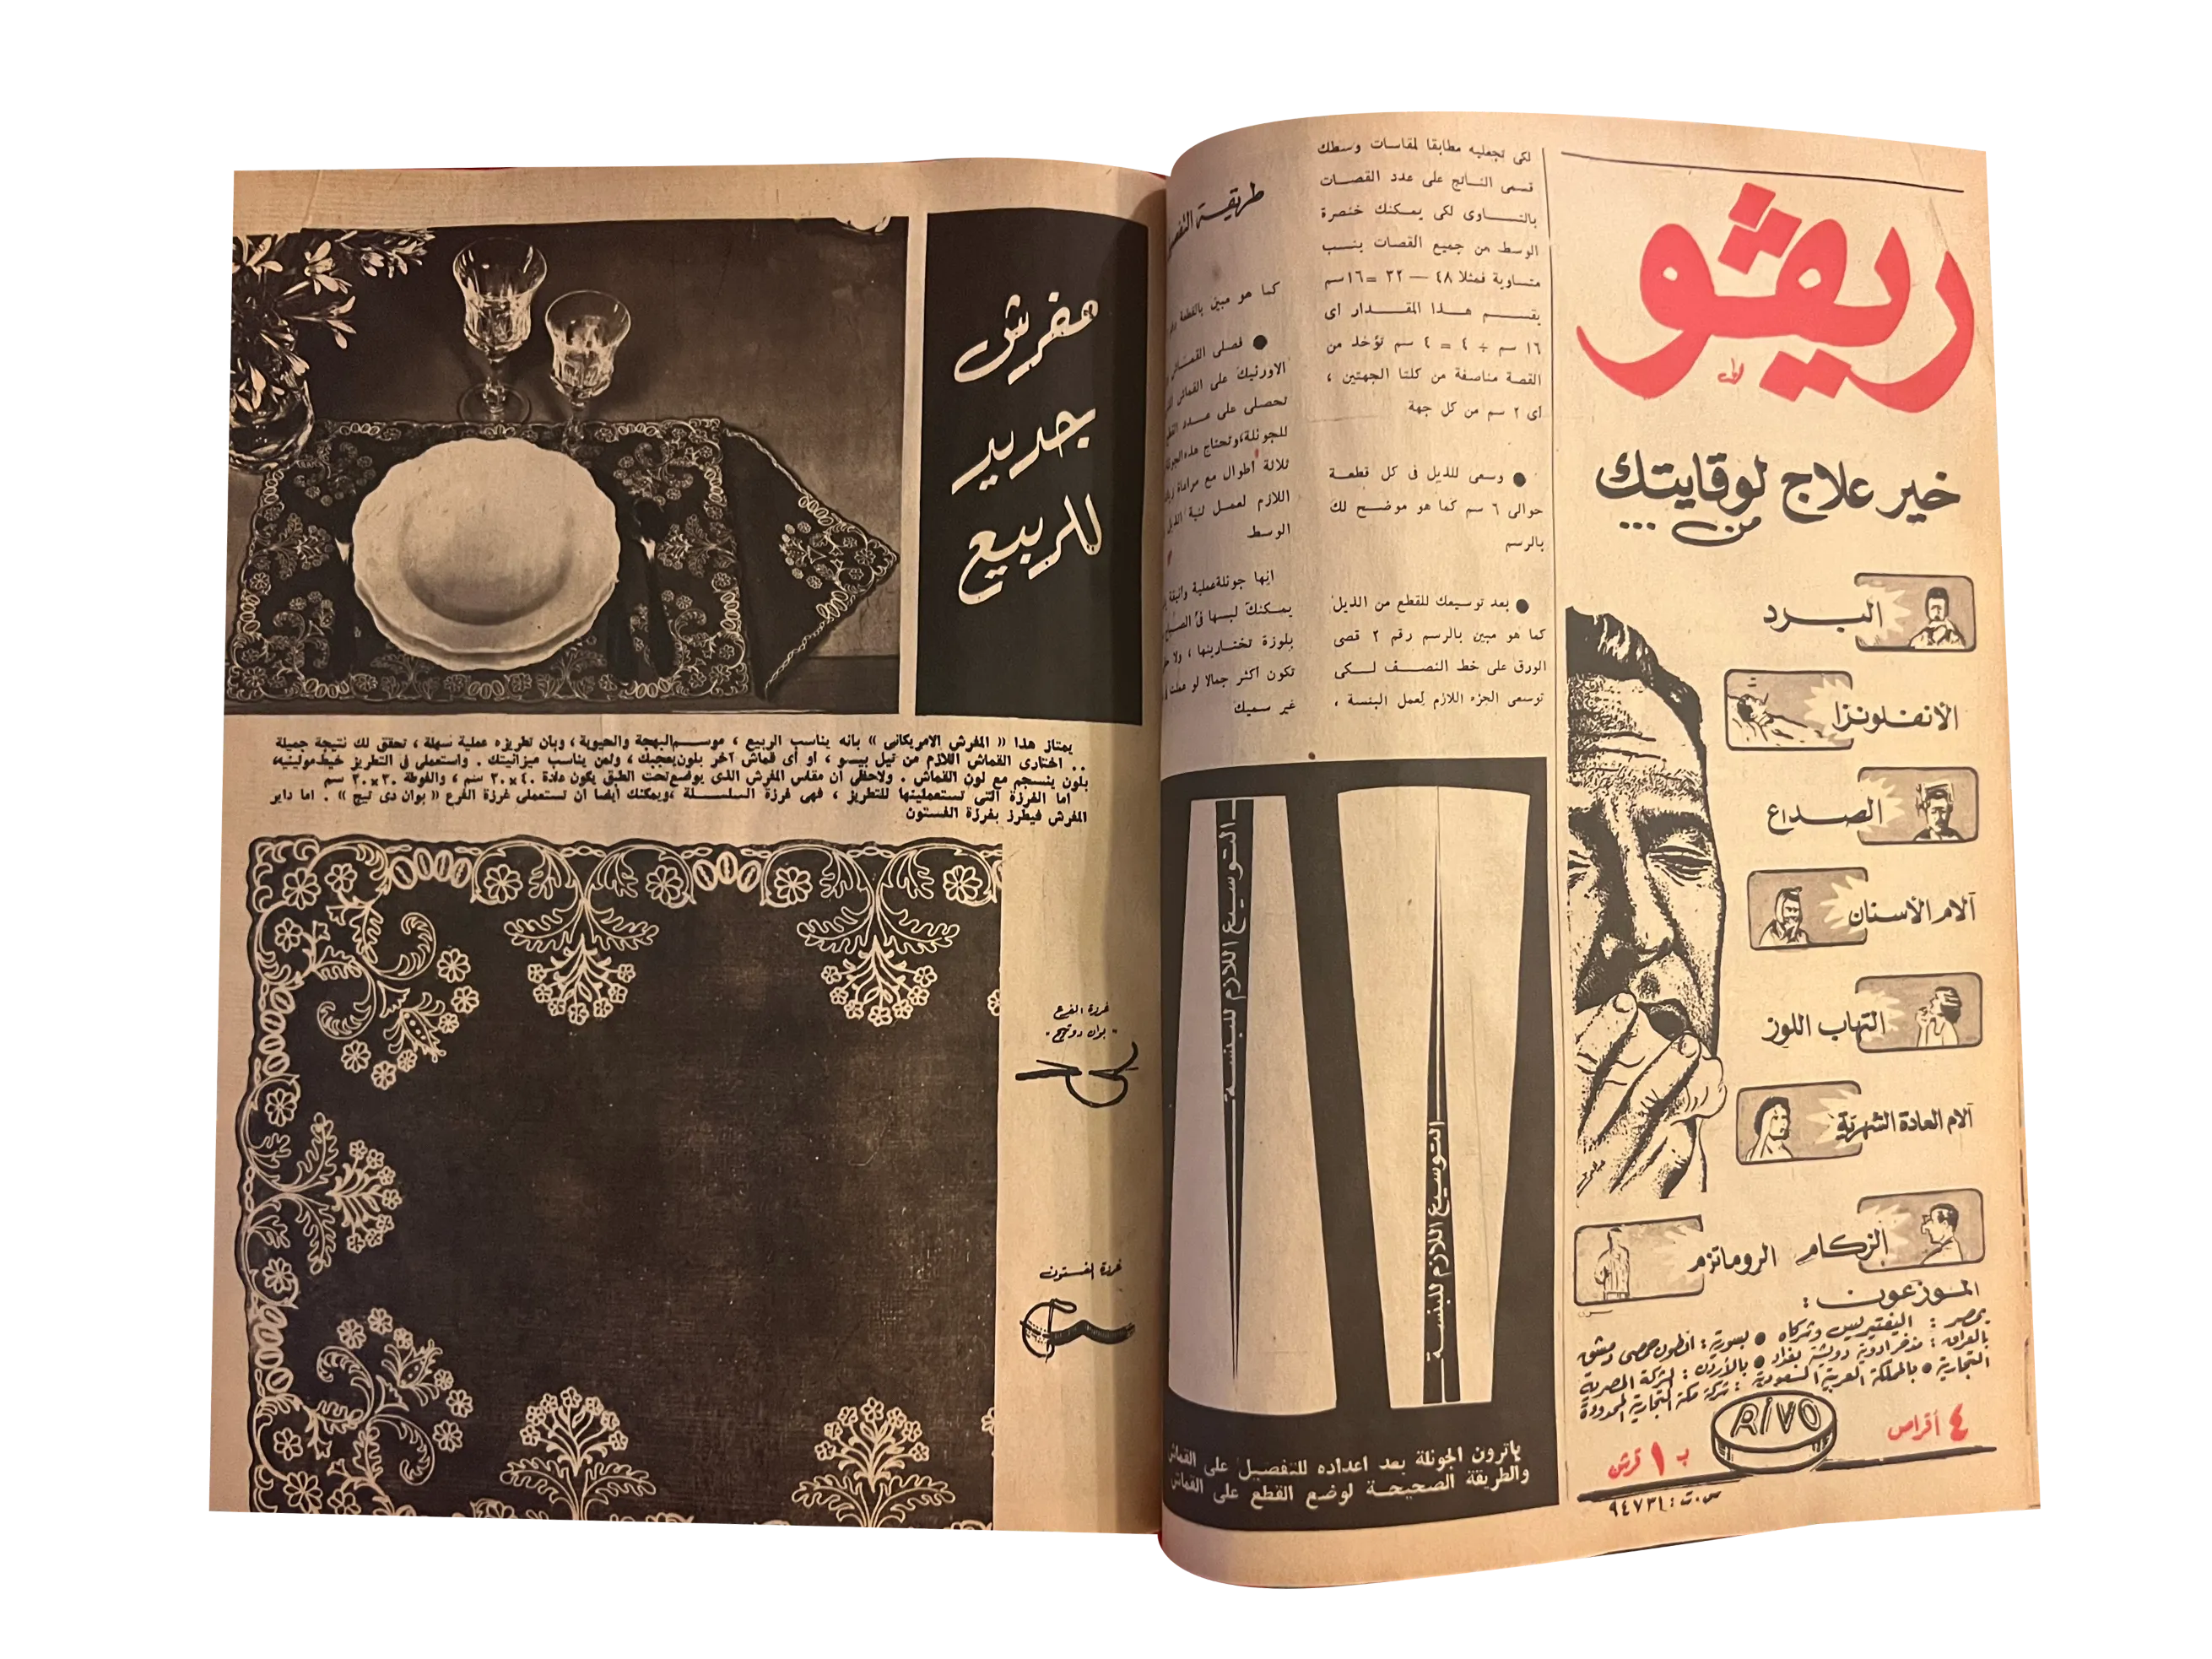 ريڤو
خير علاج لوقايتك
من ...
البرد
الانفلونزا
الصداع
آلام الأسنان
التهاب اللوز
آلام العادة الشهرية
الزكام
الروماتزم
الموزعون :
بمصر : اليفتيريس وشركاه • بسورية : انطون حمصى دمشق
بالعراق : مذخر ادوية دويشة بغداد • بالأردن : الشركة المصرية
التجارية • بالمملكة العربية السعودية : شركة مكة التجارية المحدودة
RIVO
٤ أقراص
ب ١ قرش
س.ت : ٩٤٧٣١
لكى تجعليه مطابقا لمقاسات وسطك
قسمى الناتج على عدد القصات
بالتساوى لكى يمكنك خنصرة
الوسط من جميع القصات بنسب
متساوية فمثلا ٤٨ — ٣٢ = ١٦سم
يقسم هذا المقدار اى
١٦ سم ÷ ٤ = ٤ سم تؤخذ من
القصة مناصفة من كلتا الجهتين ،
اى ٢ سم من كل جهة
● وسعى للذيل فى كل قطعة
حوالى ٦ سم كما هو موضح لك
بالرسم
● بعد توسيعك للقطع من الذيل
كما هو مبين بالرسم رقم ٢ قصى
الورق على خط النصف لكى
توسعى الجزء اللازم لعمل البنسة ،
طريقة
كما هو مبين بالقطعة
● فصلى
الاورنيك على القماش
تحصلى على عدد
للجونلة،وتحتاج هذه
ثلاثة أطوال مع مراعاة
اللازم لعمل ثنية
الوسط
انها جونلة عملية وانيقة
يمكنك لبسها فى
بلوزة تختارينها ، ولا
تكون أكثر جمالا لو عملت
غير سميك
التوسيع اللازم للبنسة
التوسيع اللازم للبنسة
باترون الجونلة بعد اعداده للتفصيل على القماش
والطريقة الصحيحة لوضع القطع على القماش
مفرش
جديد
للربيع
يمتاز هذا « المفرش الامريكانى » بانه يناسب الربيع ، موسم البهجة والحيوية ، وبان تطريزه عملية سهلة ، تحقق لك نتيجة جميلة
.. اختارى القماش اللازم من تيل بيسو ، او أى قماش آخر بلون يعجبك ، وثمن يناسب ميزانيتك . واستعملى فى التطريز خيط مولينيه،
بلون ينسجم مع لون القماش . ولاحظى أن مقاس المفرش الذى يوضع تحت الطبق يكون عادة ٤٠×٣٠ سم ، والفوطة ٣٠×٣٠ سم
أما الغرزة التى تستعملينها للتطريز ، فهى غرزة السلسلة ،ويمكنك أيضا ان تستعملى غرزة الفرع « بوان دى تيج » . اما داير
المفرش فيطرز بغرزة الفستون
غرزة الفرع
" بوان دوتيج "
غرزة الفستون